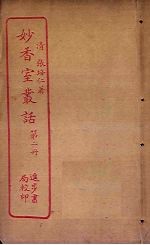 清 張培仁著
妙香室叢話
第二冊
進步書
局校印